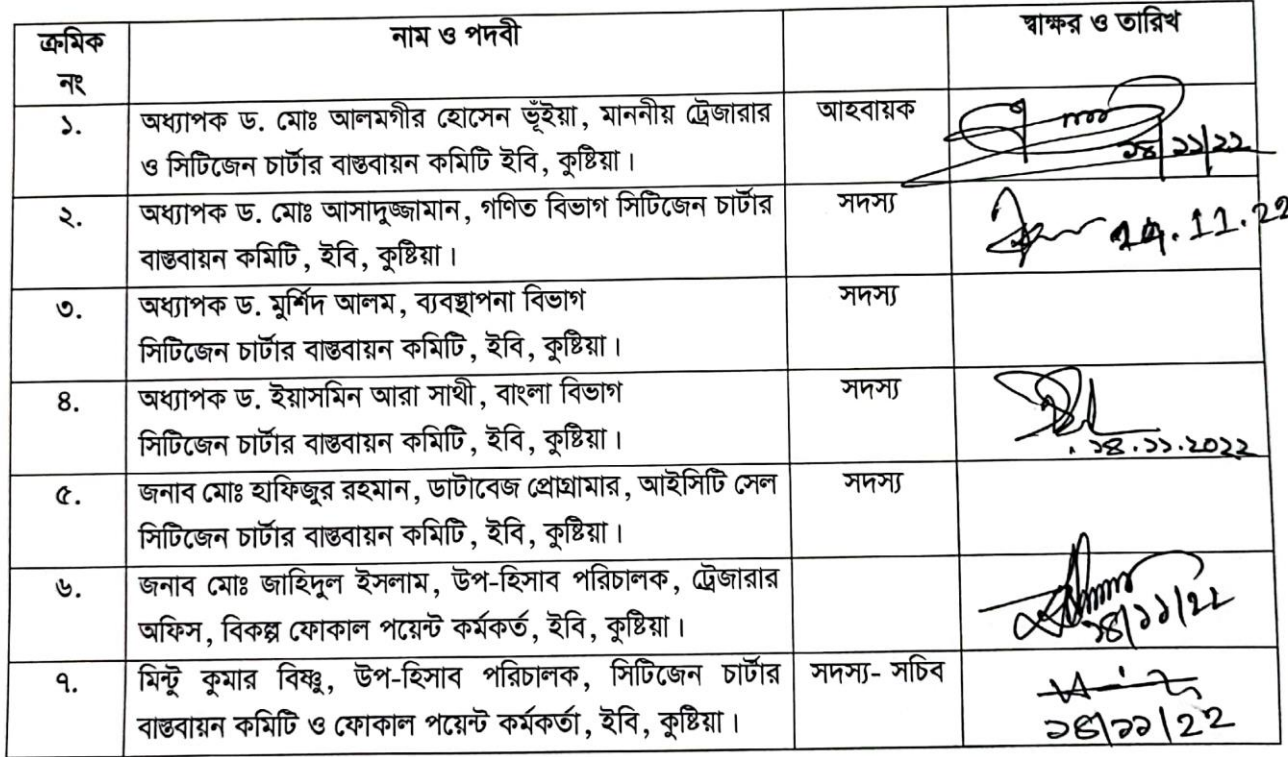 ক্রমিক নং
নাম ও পদবী
স্বাক্ষর ও তারিখ
১.
অধ্যাপক ড. মোঃ আলমগীর হোসেন ভূঁইয়া, মাননীয় ট্রেজারার
ও সিটিজেন চার্টার বাস্তবায়ন কমিটি ইবি, কুষ্টিয়া।
আহবায়ক
১৪/১১/২২
২.
অধ্যাপক ড. মোঃ আসাদুজ্জামান, গণিত বিভাগ সিটিজেন চার্টার
বাস্তবায়ন কমিটি, ইবি, কুষ্টিয়া।
সদস্য
14.11.22
৩.
অধ্যাপক ড. মুর্শিদ আলম, ব্যবস্থাপনা বিভাগ
সিটিজেন চার্টার বাস্তবায়ন কমিটি, ইবি, কুষ্টিয়া।
সদস্য
৪.
অধ্যাপক ড. ইয়াসমিন আরা সাথী, বাংলা বিভাগ
সিটিজেন চার্টার বাস্তবায়ন কমিটি, ইবি, কুষ্টিয়া।
সদস্য
১৪.১১.২০২২
৫.
জনাব মোঃ হাফিজুর রহমান, ডাটাবেজ প্রোগ্রামার, আইসিটি সেল
সিটিজেন চার্টার বাস্তবায়ন কমিটি, ইবি, কুষ্টিয়া।
সদস্য
৬.
জনাব মোঃ জাহিদুল ইসলাম, উপ-হিসাব পরিচালক, ট্রেজারার
অফিস, বিকল্প ফোকাল পয়েন্ট কর্মকর্ত, ইবি, কুষ্টিয়া।
১৪/১১/২২
৭.
মিন্টু কুমার বিষ্ণু, উপ-হিসাব পরিচালক, সিটিজেন চার্টার
বাস্তবায়ন কমিটি ও ফোকাল পয়েন্ট কর্মকর্তা, ইবি, কুষ্টিয়া।
সদস্য- সচিব
১৪/১১/২২